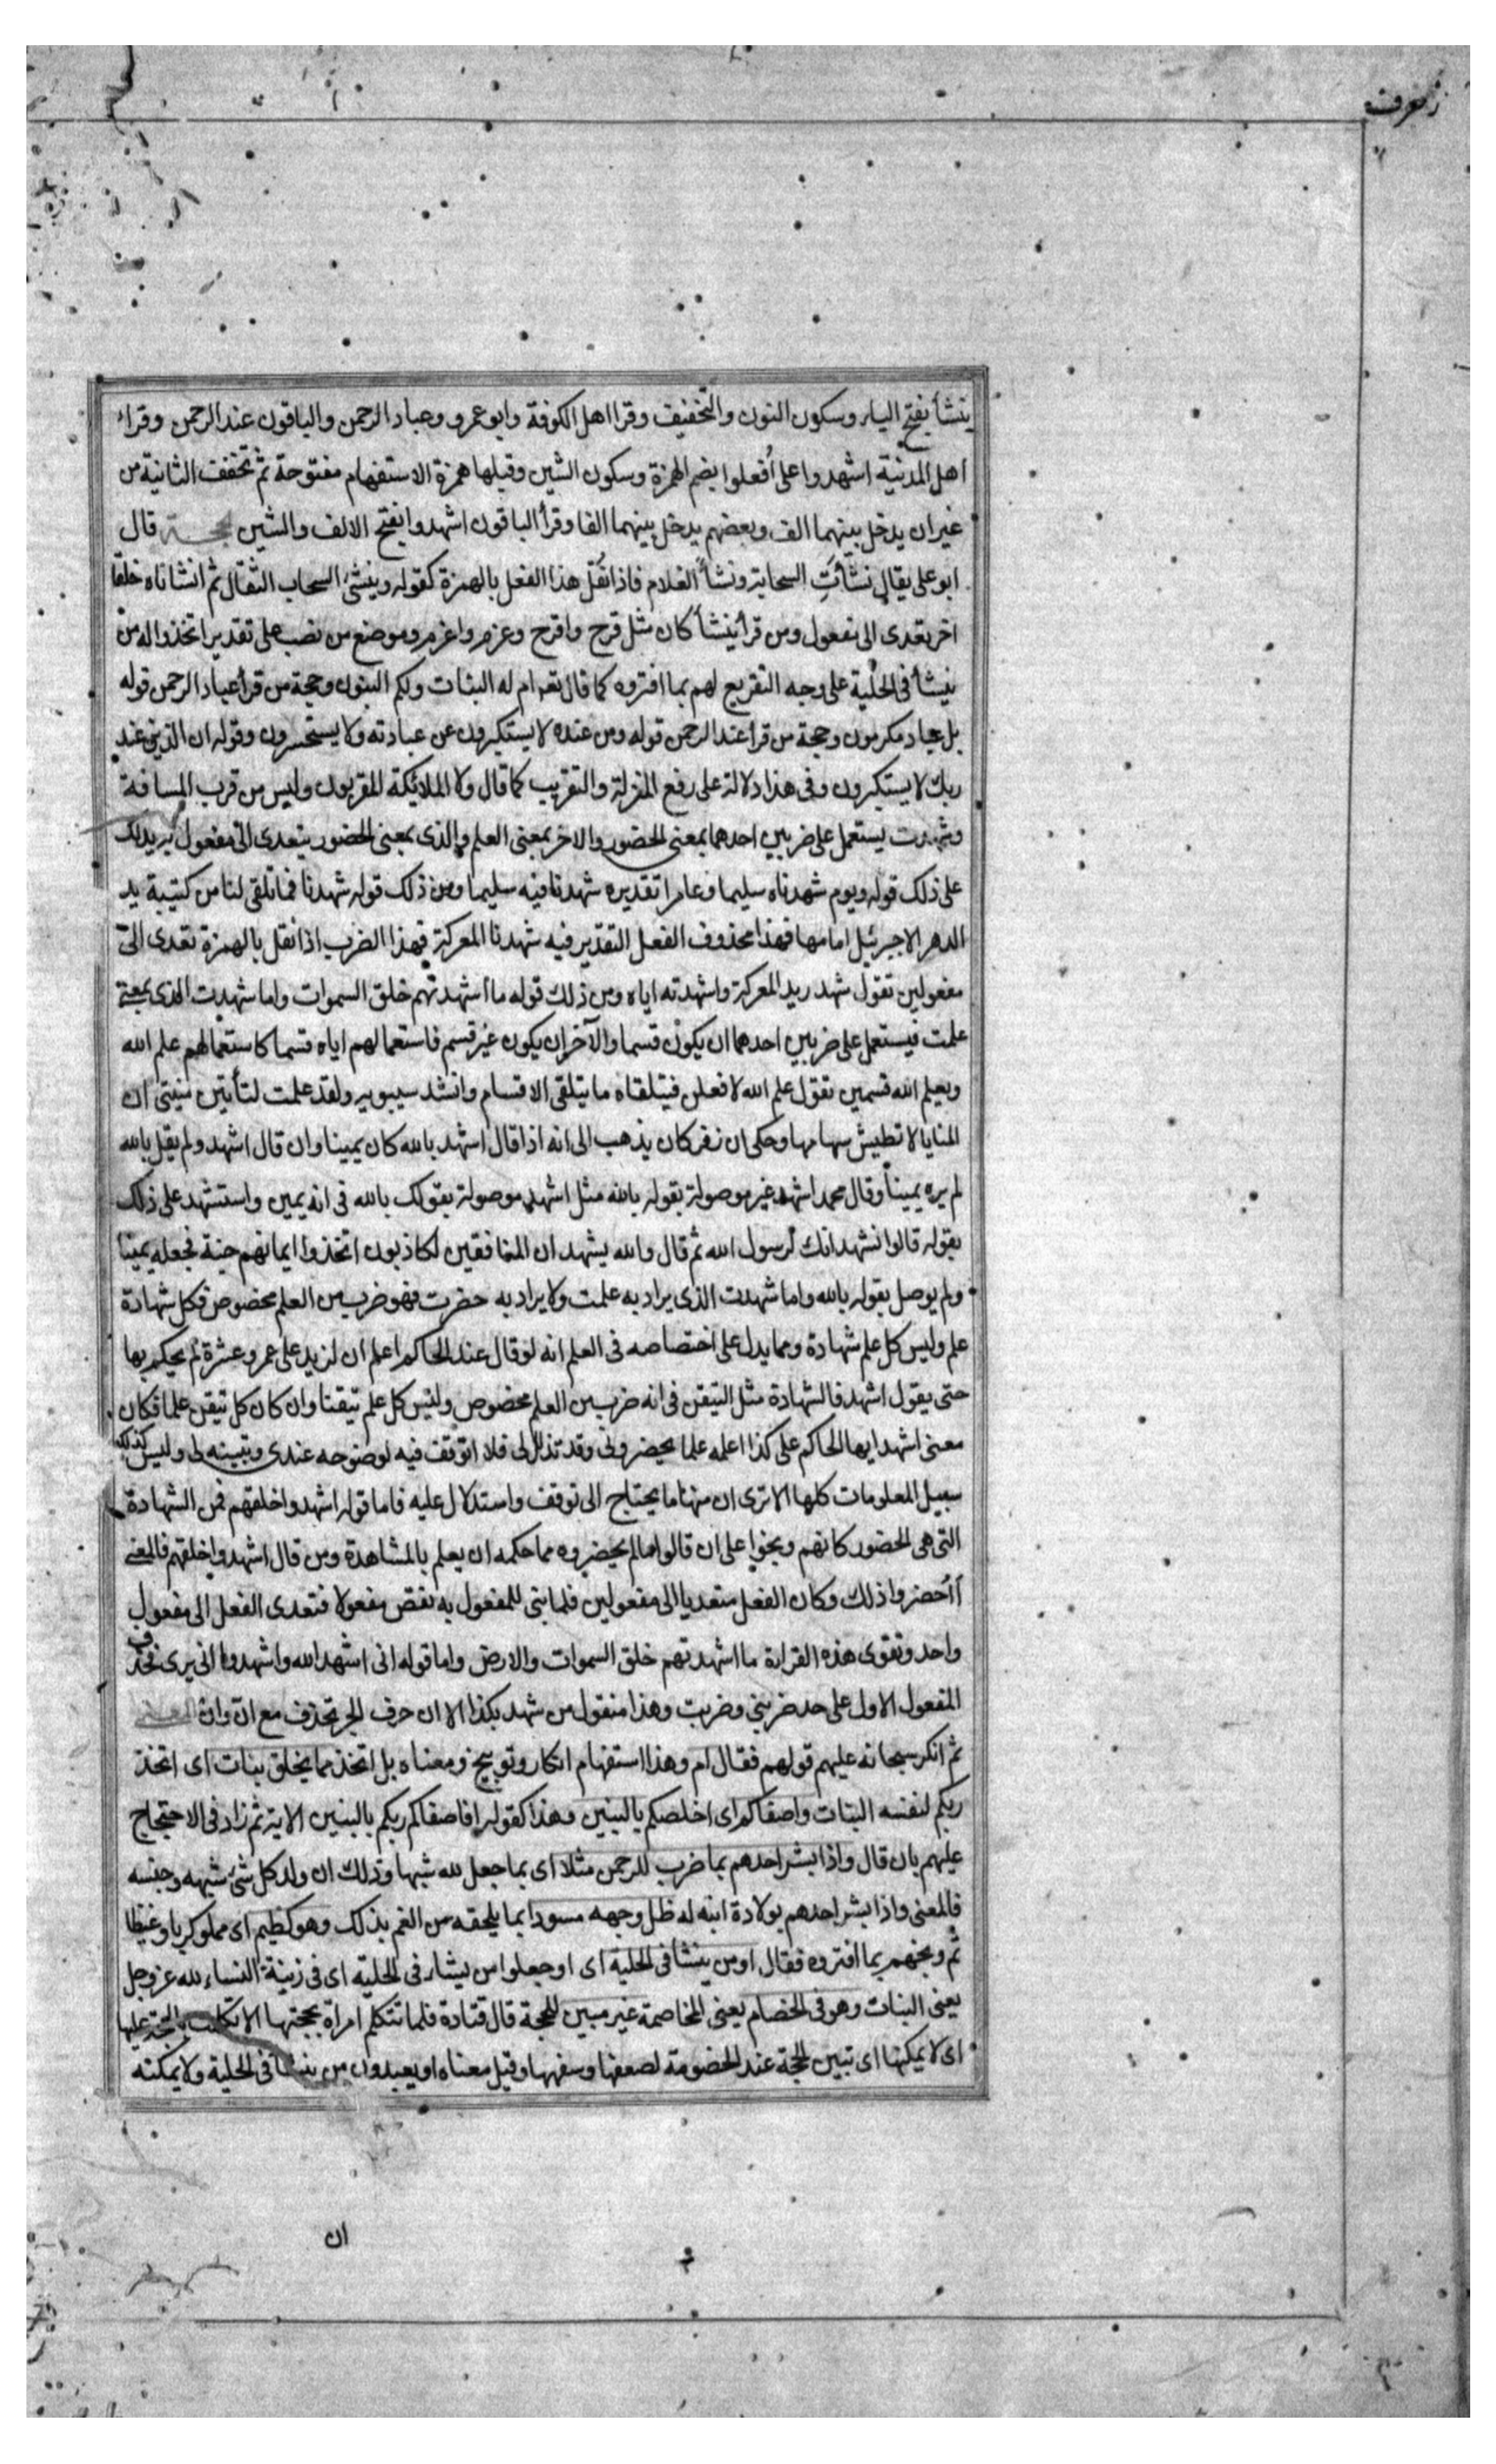 زخرف
ينشأ بفتح الياء وسكون النون والتخفيف وقرا اهل الكوفة وابو عمرو وعباد الرحمن والباقون عند الرحمن وقراء
اهل المدينة اشهدوا على اُفعلوا بضم الهمزة وسكون الشين وقبلها همزة الاستفهام مفتوحة ثم تخفف الثانية من
غير ان يدخل بينهما الف وبعضهم يدخل بينهما الفا وقرأ الباقون اشهدوا بفتح الالف والشين الحجة قال
ابو على يقال نشأتِ السحابة ونشأ الغلام فاذا نُقل هذا الفعل بالهمزة كقوله وينشئ السحاب الثقال ثم انشاناه خلقا
اخر تعدى الى مفعول ومن قرأ ينشأ كان مثل فرح وافرح وغرم واغرم وموضع من نصب على تقدير اتخذوا له من
ينشأ فى الحلية على وجه التقريع لهم بما افتروه كما قال تعم ام له البنات ولكم البنون وحجة من قرأ عباد الرحمن قوله
بل عباد مكرمون وحجة من قرا عند الرحمن قوله ومن عنده لا يستكبرون عن عبادته ولا يستحسرون وقوله ان الذين عند
ربك لا يستكبرون وفى هذا دلالة على رفع المنزلة والتقريب كما قال ولا الملائيكة المقربون وليس من قرب المسافة
وشهدت يستعمل على ضربين احدهما بمعنى الحضور والاخر بمعنى العلم والذى بمعنى الحضور يتعدى الى مفعول يريدلك
على ذلك قوله ويوم شهدناه سليما وعامرا تقديره شهدنا فيه سليما ومن ذلك قوله شهدنا فما تلقى لنا من كتيبة يد
الدهر الا جبرئيل امامها فهذا محذوف الفعل التقدير فيه شهدنا المعركة فهذا الضرب اذا نقل بالهمزة تعدى الى
مفعولين تقول شهد زيد المعركة واشهدته اياه ومن ذلك قوله ما اشهدتهم خلق السموات واما شهدت الذى بمعنى
علمت فيستعمل على ضربين احدهما ان يكون قسما والآخر ان يكون غير قسم فاستعمالهم اياه قسما كاستعمالهم علم الله
ويعلم الله قسمين تقول علم الله لافعلن فيتلقاه ما يتلقى الاقسام وانشد سيبويه ولقد علمت لتأتين منيتى ان
المنايا لا تطيش سهامها وحكى ان زفر كان يذهب الى انه اذا قال اشهد بالله كان يمينا وان قال اشهد ولم يقل بالله
لم يره يمينا وقال محمد اشهد غير موصولة بقوله بالله مثل اشهد موصولة بقولك بالله فى انه يمين واستشهد على ذلك
بقوله قالوا نشهد انك لرسول الله ثم قال والله يشهد ان المنافقين لكاذبون اتخذوا ايمانهم جنة فجعله يمينا
ولم يوصل بقوله بالله واما شهدت الذى يراد به علمت ولا يراد به حضرت فهو ضرب من العلم مخصوص فكل شهادة
علم وليس كل علم شهادة ومما يدل على اختصاصه فى العلم انه لو قال عند الحاكم اعلم ان لزيد على عمرو عشرة لم يحكم بها
حتى يقول اشهد فالشهادة مثل التيقن فى انه ضرب من العلم مخصوص وليس كل علم تيقنا وان كان كل تيقن علما فكان
معنى اشهد ايها الحاكم على كذا اعلمه علما يحضرونى وقد تذلل لى فلا اتوقف فيه لوضوحه عندى وتبينه لى وليس كذلك
سبيل المعلومات كلها الا ترى ان منها ما يحتاج الى توقف واستدلال عليه فاما قوله اشهدوا خلقهم فمن الشهادة
التى هى الحضور كانهم وبخوا على ان قالوا ما لم يحضروه مما حكمه ان يعلم بالمشاهدة ومن قال اشهدوا خلقهم فالمعنى
أاُحضروا ذلك وكان الفعل متعديا الى مفعولين فلما بنى للمفعول به نقص مفعولا فتعدى الفعل الى مفعول
واحد وتقوى هذه القراءة ما اشهدتهم خلق السموات والارض واما قوله انى اشهد الله واشهدوا انى برى فحذف
المفعول الاول على حد ضربنى وضربت وهذا منقول من شهد بكذا الا ان حرف الجر تحذف مع انّ وان المعنى
ثم انكر سبحانه عليهم قولهم فقال ام وهذا استفهام انكار وتوبيخ ومعناه بل اتخذ مما يخلق بنات اى اتخذ
ربكم لنفسه البنات واصفاكم اى اخلصكم بالبنين وهذا كقوله افاصفاكم ربكم بالبنين الاية ثم زاد فى الاحتجاج
عليهم بان قال واذا بشر احدهم بما ضرب للرحمن مثلا اى بما جعل لله شبها وذلك ان ولد كل شئ شبهه وجنسه
فالمعنى واذا بشر احدهم بولادة ابنه له ظل وجهه مسودا بما يلحقه من الغم بذلك وهو كظيم اى مملو كربا وغيظا
ثم وبخهم بما افتروه فقال اومن ينشا فى الحلية اى اوجعلوا من ينشار فى الحلية اى فى زينة النساء لله عز وجل
يعنى البنات وهو فى الخصام يعنى المخاصمة غير مبين للحجة قال قتادة فلما تتكلم امراة بحجتها الا تكلمت بالحجة عليها
اى لا يمكنها اى تبين الحجة عند الخصومة لضعفها وسفهها وقيل معناه او يعبدون من ينشا فى الحلية ولا يمكنه
ان